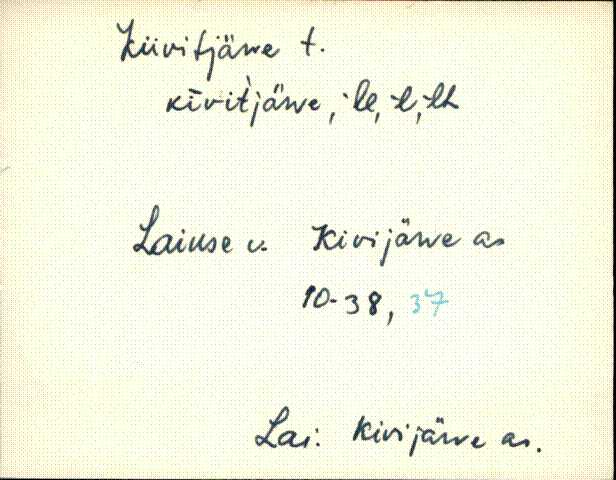 Kiivitjärve t.
kīvit̀järve, -le, -l, -lt
Laiuse v. Kivijärve as
10-38, 37
Lai. Kivijärve as.